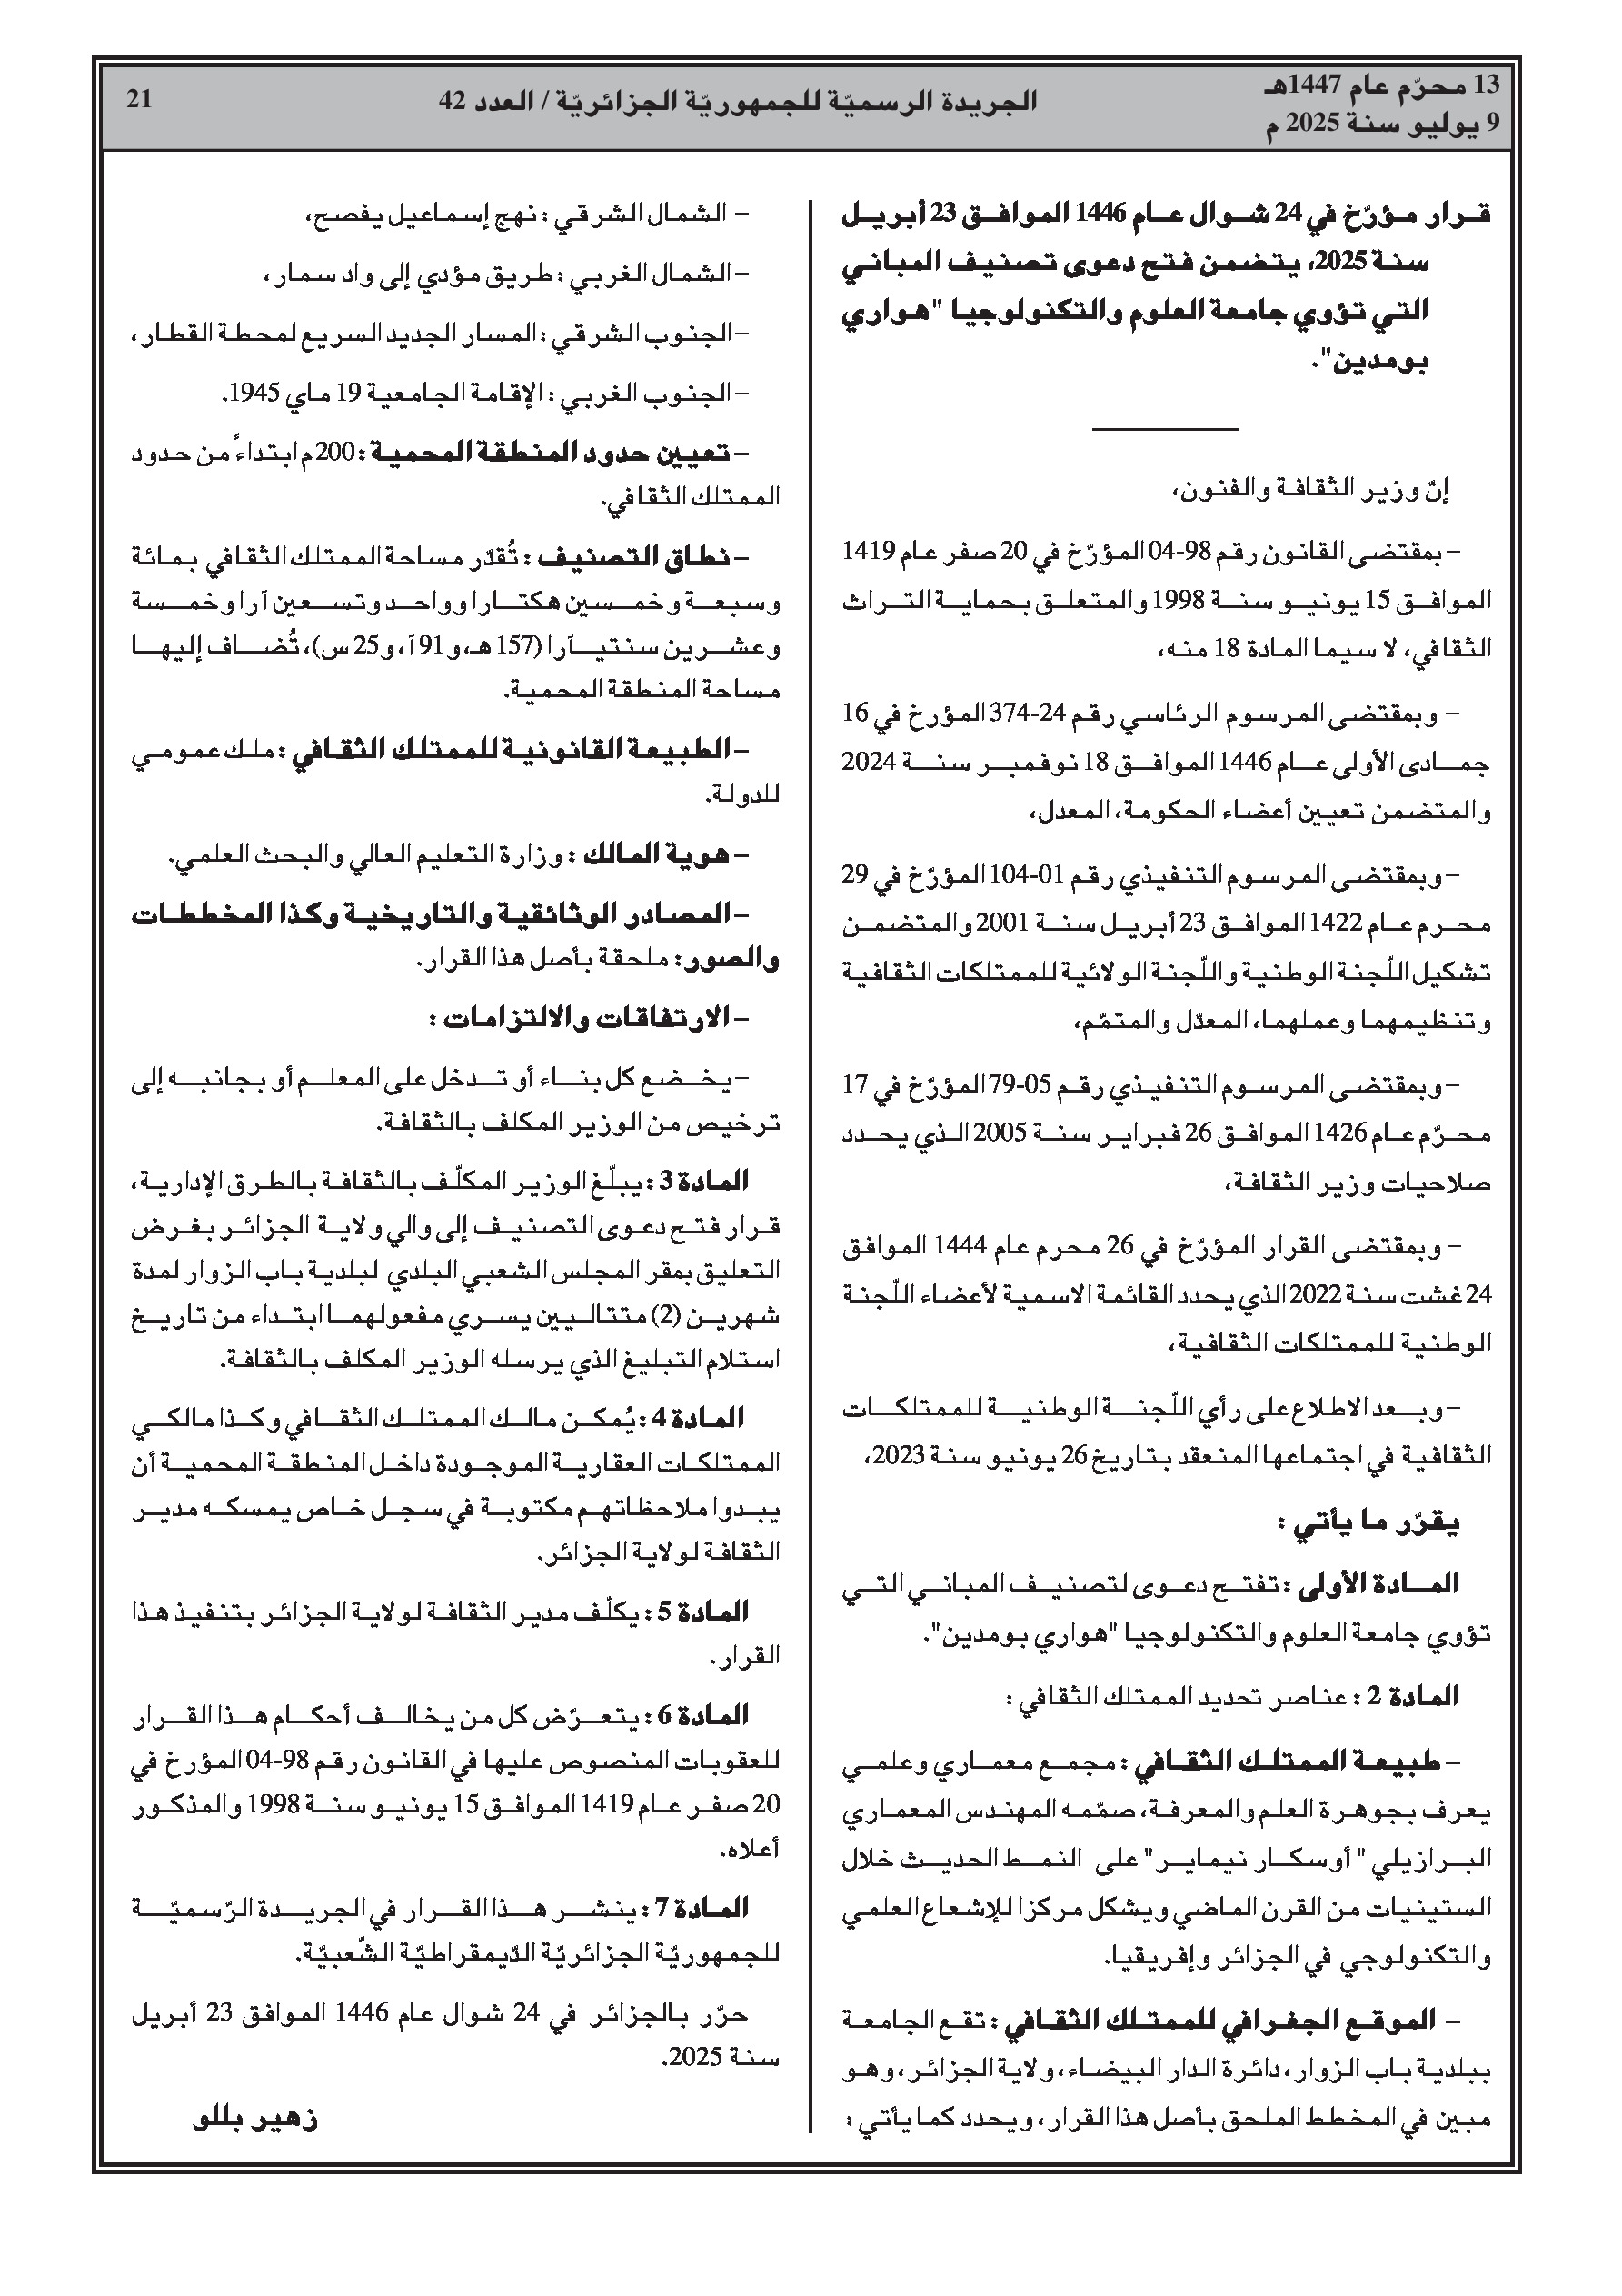 13 محرّم عام 1447هـ
9 يوليو سنة 2025 م
الجريدة الرسميّة للجمهوريّة الجزائريّة / العدد 42
21
قرار مؤرّخ في 24 شوال عام 1446 الموافق 23 أبريل
سنة 2025، يتضمن فتح دعوى تصنيف المباني
التي تؤوي جامعة العلوم والتكنولوجيا "هواري
بومدين".
إنّ وزير الثقافة والفنون،
– بمقتضى القانون رقم 98-04 المؤرّخ في 20 صفر عام 1419
الموافق 15 يونيو سنة 1998 والمتعلق بحماية التراث
الثقافي، لا سيما المادة 18 منه،
– وبمقتضى المرسوم الرئاسي رقم 24-374 المؤرخ في 16
جمادى الأولى عام 1446 الموافق 18 نوفمبر سنة 2024
والمتضمن تعيين أعضاء الحكومة، المعدل،
– وبمقتضى المرسوم التنفيذي رقم 01-104 المؤرّخ في 29
محرم عام 1422 الموافق 23 أبريل سنة 2001 والمتضمن
تشكيل اللّجنة الوطنية واللّجنة الولائية للممتلكات الثقافية
وتنظيمهما وعملهما، المعدّل والمتمّم،
– وبمقتضى المرسوم التنفيذي رقم 05-79 المؤرّخ في 17
محرّم عام 1426 الموافق 26 فبراير سنة 2005 الذي يحدد
صلاحيات وزير الثقافة،
– وبمقتضى القرار المؤرّخ في 26 محرم عام 1444 الموافق
24 غشت سنة 2022 الذي يحدد القائمة الاسمية لأعضاء اللّجنة
الوطنية للممتلكات الثقافية،
– وبعد الاطلاع على رأي اللّجنة الوطنية للممتلكات
الثقافية في اجتماعها المنعقد بتاريخ 26 يونيو سنة 2023،
يقرّر ما يأتي :
المادة الأولى : تفتح دعوى لتصنيف المباني التي
تؤوي جامعة العلوم والتكنولوجيا "هواري بومدين".
المادة 2 : عناصر تحديد الممتلك الثقافي :
– طبيعة الممتلك الثقافي : مجمع معماري وعلمي
يعرف بجوهرة العلم والمعرفة، صمّمه المهندس المعماري
البرازيلي " أوسكار نيماير" على النمط الحديث خلال
الستينيات من القرن الماضي ويشكل مركزا للإشعاع العلمي
والتكنولوجي في الجزائر وإفريقيا.
– الموقع الجغرافي للممتلك الثقافي : تقع الجامعة
ببلدية باب الزوار، دائرة الدار البيضاء، ولاية الجزائر، وهو
مبين في المخطط الملحق بأصل هذا القرار، ويحدد كما يأتي :
– الشمال الشرقي : نهج إسماعيل يفصح،
– الشمال الغربي : طريق مؤدي إلى واد سمار،
– الجنوب الشرقي : المسار الجديد السريع لمحطة القطار،
– الجنوب الغربي : الإقامة الجامعية 19 ماي 1945.
– تعيين حدود المنطقة المحمية : 200 م ابتداءً من حدود
الممتلك الثقافي.
– نطاق التصنيف : تُقدّر مساحة الممتلك الثقافي بمائة
وسبعة وخمسين هكتارا وواحد وتسعين آرا وخمسة
وعشرين سنتيآرا (157 هـ، و91 آ، و25 س)، تُضاف إليها
مساحة المنطقة المحمية.
– الطبيعة القانونية للممتلك الثقافي : ملك عمومي
للدولة.
– هوية المالك : وزارة التعليم العالي والبحث العلمي.
– المصادر الوثائقية والتاريخية وكذا المخططات
والصور : ملحقة بأصل هذا القرار.
– الارتفاقات والالتزامات :
– يخضع كل بناء أو تدخل على المعلم أو بجانبه إلى
ترخيص من الوزير المكلف بالثقافة.
المادة 3 : يبلّغ الوزير المكلّف بالثقافة بالطرق الإدارية،
قرار فتح دعوى التصنيف إلى والي ولاية الجزائر بغرض
التعليق بمقر المجلس الشعبي البلدي لبلدية باب الزوار لمدة
شهرين (2) متتاليين يسري مفعولهما ابتداء من تاريخ
استلام التبليغ الذي يرسله الوزير المكلف بالثقافة.
المادة 4 : يُمكن مالك الممتلك الثقافي وكذا مالكي
الممتلكات العقارية الموجودة داخل المنطقة المحمية أن
يبدوا ملاحظاتهم مكتوبة في سجل خاص يمسكه مدير
الثقافة لولاية الجزائر.
المادة 5 : يكلّف مدير الثقافة لولاية الجزائر بتنفيذ هذا
القرار.
المادة 6 : يتعرّض كل من يخالف أحكام هذا القرار
للعقوبات المنصوص عليها في القانون رقم 98-04 المؤرخ في
20 صفر عام 1419 الموافق 15 يونيو سنة 1998 والمذكور
أعلاه.
المادة 7 : ينشر هذا القرار في الجريدة الرّسميّة
للجمهوريّة الجزائريّة الدّيمقراطيّة الشّعبيّة.
حرّر بالجزائر في 24 شوال عام 1446 الموافق 23 أبريل
سنة 2025.
زهير بللو